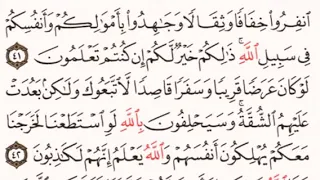 ٱنفِرُوا۟ خِفَافًا وَثِقَالًا وَجَـٰهِدُوا۟ بِأَمْوَٰلِكُمْ وَأَنفُسِكُمْ
فِى سَبِيلِ ٱللَّهِ ۚ ذَٰلِكُمْ خَيْرٌ لَّكُمْ إِن كُنتُمْ تَعْلَمُونَ ٤١
لَوْ كَانَ عَرَضًا قَرِيبًا وَسَفَرًا قَاصِدًا لَّٱتَّبَعُوكَ وَلَـٰكِنۢ بَعُدَتْ
عَلَيْهِمُ ٱلشُّقَّةُ ۚ وَسَيَحْلِفُونَ بِٱللَّهِ لَوِ ٱسْتَطَعْنَا لَخَرَجْنَا
مَعَكُمْ يُهْلِكُونَ أَنفُسَهُمْ وَٱللَّهُ يَعْلَمُ إِنَّهُمْ لَكَـٰذِبُونَ ٤٢